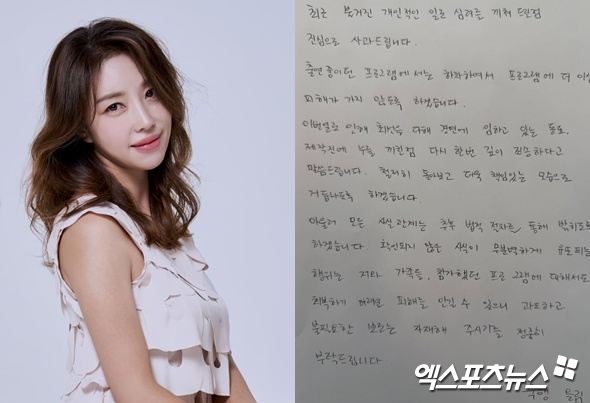 최근 불거진 개인적인 일로 심려를 끼쳐 드린점
진심으로 사과드립니다.
출연중이던 프로그램에서는 하차하여서 프로그램에 더 이상
피해가 가지 않도록 하겠습니다.
이번일로 인해 최선을 다해 경연에 임하고 있는 동료,
제작진에 누를 끼친점 다시 한번 깊이 죄송하다고
말씀드립니다. 철저히 돌아보고 더욱 책임있는 모습으로
거듭나도록 하겠습니다.
아울러 모든 사실관계는 추후 법적 절차를 통해 밝히도록
하겠습니다. 확인되지 않은 사실이 무분별하게 유포되는
행위는 저와 가족들, 참가했던 프로그램에 대해서도
회복하기 어려운 피해를 안길 수 있으니 과도하고
불필요한 보도는 자제해 주시기를 정중히
부탁드립니다
올림
엑스포츠뉴스